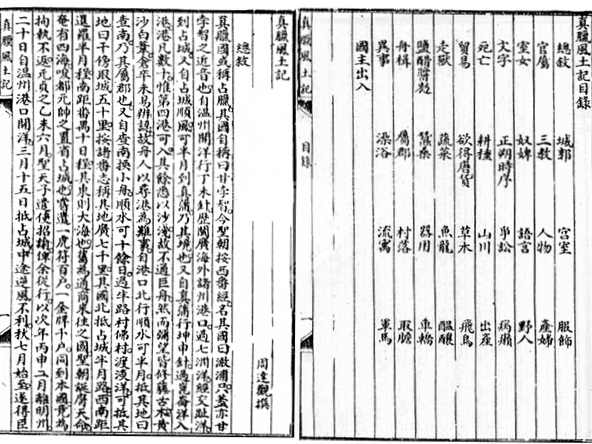 真臘風土記目錄
總敘 城郭 宮室 服飾
官屬 三教 人物 產婦
室女 奴婢 語言 野人
文字 正朔時序 爭訟 病癩
死亡 耕種 山川 出產
貿易 欲得唐貨 草木 飛鳥
走獸 蔬菜 魚龍 醞釀
鹽醋醬麪 蠶桑 器用 車轎
舟楫 屬郡 村落 取膽
異事 澡浴 流寓 軍馬
國主出入
真臘風土記 目錄
真臘風土記
周達觀撰
總敘
真臘國或稱占臘其國自稱曰甘孛智今聖朝按西番經名其國曰澉浦只蓋亦甘
孛智之近音也自溫州開洋行丁未針歷閩廣海外諸州港口過七洲洋經交趾洋
到占城又自占城順風可半月到真蒲乃其境也又自真蒲行坤申針過崑崙洋入
港港凡數十惟第四港可入其餘悉以沙淺故不通巨舟然而彌望皆修藤古木黃
沙白葦倉卒未易辨認故舟人以尋港為難事自港口北行順水可半月抵其地曰
查南乃其屬郡也又自查南換小舟順水可十餘日過半路村佛村渡淡洋可抵其
地曰干傍取城五十里按諸番志稱其地廣七千里其國北抵占城半月路西南距
暹羅半月程南距番禺十日程其東則大海也舊為通商來往之國聖朝誕膺天命
奄有四海唆都元帥之置省占城也嘗遣一虎符百戶一金牌千戶同到本國竟為
拘執不返元貞之乙未六月聖天子遣使招諭俾余從行以次年丙申二月離明州
二十日自溫州港口開洋三月十五日抵占城中途逆風不利秋七月始至遂得臣
真臘風土記